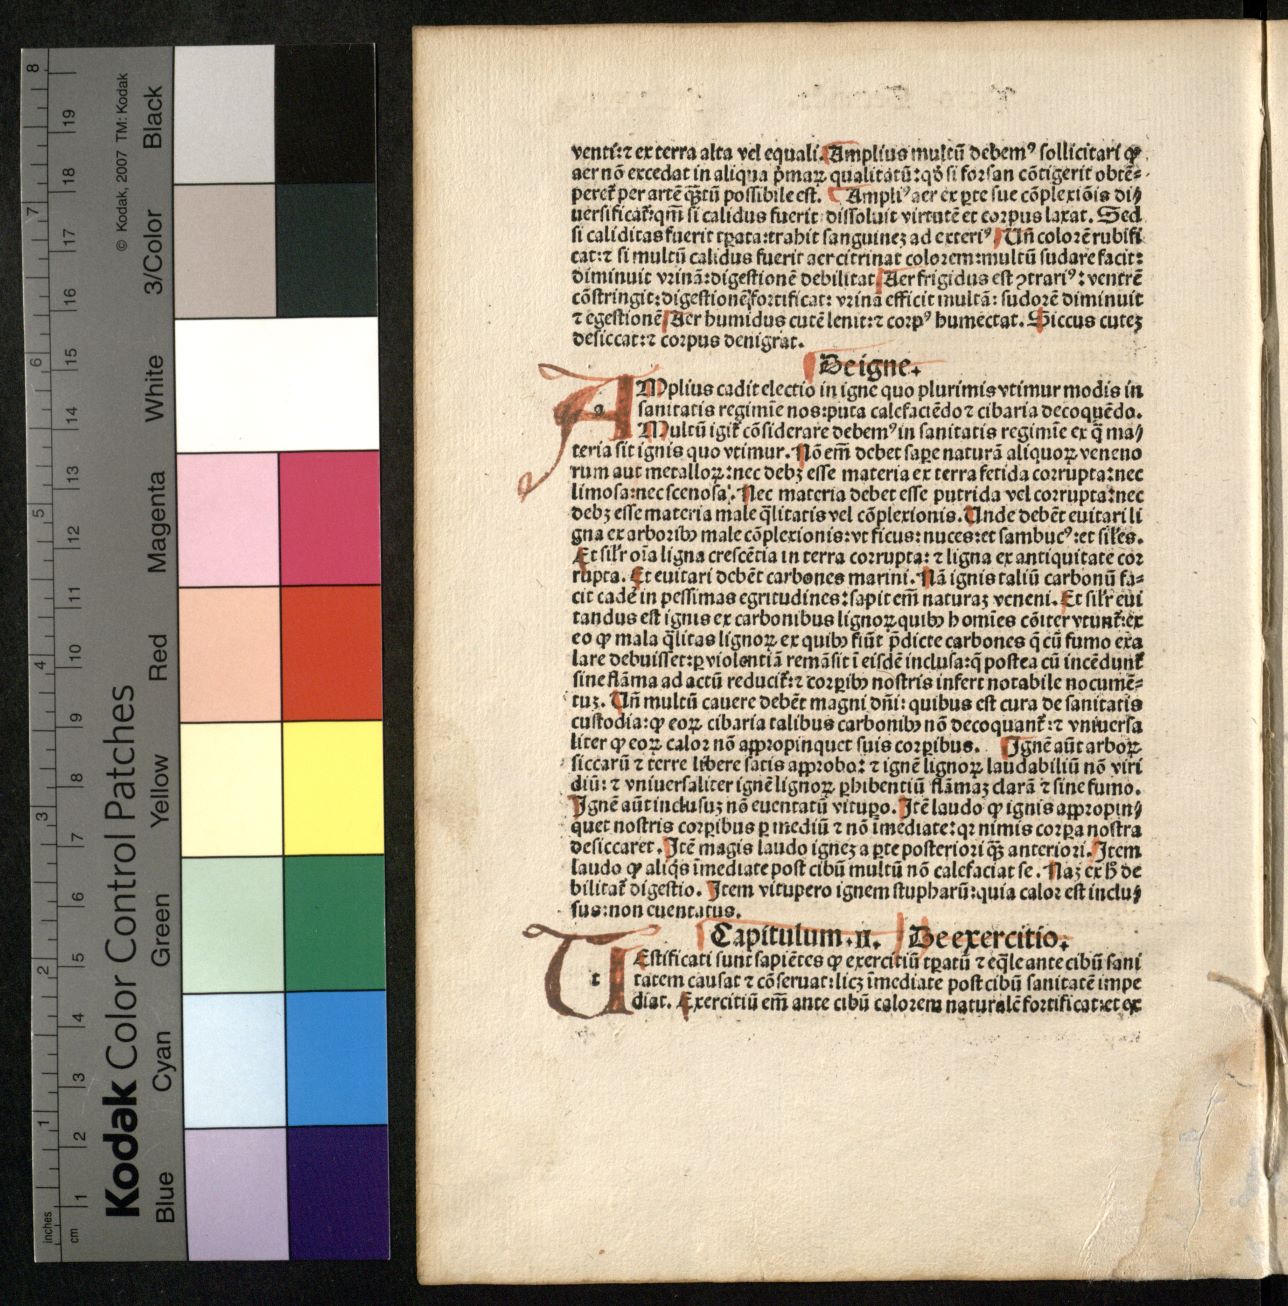 ventí:⁊ ex terra alta vel equali. Amplius multū debemꝰ sollicitari ꝙ
aer nō excedat in aliqua p̄maꝝ qualitatū:qđ si forsan cōtigerit obtē⸗
peret̄ per artē q̄ꝫtū possibile est. Ampliꝰ aer ex ꝑte sue cōplexiōis di/
uersificat̄:qm̄ si calidus fuerit dissoluit virtutē et corpus laxat. Sed
si caliditas fuerit tꝑata:trahit sanguineꝫ ad exteriꝰ Uñ colorē rubifi
cat:⁊ si multū calidus fuerit aer citrinat colorem:multū sudare facit:
diminuit vrinā:digestionē debilitat Aer frigidus est ꝯtrariꝰ: ventrē
cōstringit:digestionē fortificat: vrinā efficit multā: sudorē diminuit
⁊ egestionē Aer humidus cutē lenit:⁊ corpꝰ humectat. Siccus cuteꝫ
desiccat:⁊ corpus denigrat.
De igne.
AMplius cadit electio in igne quo plurimis vtimur modis in
sanitatis regimīe nos:puta calefaciēdo ⁊ cibaria decoquēdo.
Multū igit̄ cōsiderare debemꝰ in sanitatis regimīe ex q̄ ma/
teria sit ignis quo vtimur. Nō em̄ debet sapē naturā aliquoꝝ veneno
rum aut metalloꝝ:nec debꝫ esse materia ex terra fetida corrupta:nec
limosa:nec scenosa. Nec materia debet esse putrida vel corrupta:nec
debꝫ esse materia male q̄litatis vel cōplexionis. Unde debēt euitari li
gna ex arboribꝰ male cōplexionis:vt ficus: nuces:et sambucꝰ:et sil̄es.
Et sil̄r oīa ligna crescētia in terra corrupta: ⁊ ligna ex antiquitate cor
rupta. Et euitari debēt carbones marini. Nā ignis taliū carbonū fa⸗
cit cadē in pessimas egritudines:sapit em̄ naturaꝫ veneni. Et sil̄r eui
tandus est ignis ex carbonibus lignoꝝ quibꝰ homīes cōiter vtunt̄:ex
eo ꝙ mala q̄litas lignoꝝ ex quibꝰ fiūt p̄dicte carbones q̄ cū fumo exa
lare debuisset:ꝑ violentiā remāsit ī eisdē inclusa:q̄ postea cū incēdunt̄
sine flāma ad actū reducit̄:⁊ corꝑibꝰ nostris infert notabile nocumē⸗
tuꝫ. Uñ multū cauere debēt magni dñi: quibus est cura de sanitatis
custodia:ꝙ eoꝝ cibaria talibus carbonibꝰ nō decoquant̄:⁊ vniuersa
liter ꝙ eoꝝ calor nō aꝓpinquet suis corꝑibus. Ignē aūt arboꝝ
siccarū ⁊ terre libere satis aꝓbo: ⁊ ignē lignoꝝ laudabiliū nō viri
diū: ⁊ vniuersaliter ignē lignoꝝ ꝓhibentiū flāmaꝫ clarā ⁊ sine fumo.
Ignē aūt inclusuꝫ nō euentatū vituꝑo. Itē laudo ꝙ ignis aꝓpin/
quet nostris corꝑibus ꝑ mediū ⁊ nō īmediate:qꝛ nimis corꝑa nostra
desiccaret. Itē magis laudo igneꝫ a ꝑte posteriori q̄ꝫ anteriori. Item
laudo ꝙ aliq̄s īmediate post cibū multū nō calefaciat se. Naꝫ ex h̄ de
bilitat̄ digestio. Item vitupero ignem stupharū:quia calor est inclu/
sus:non euentatus.
Capitulum.ıı. De exercitio.
tEstificati sunt sapiētes ꝙ exercitiū tꝑatū ⁊ eq̄le ante cibū sani
tatem causat ⁊ cōseruat:licꝫ īmediate post cibū sanitatē impe
diat. Exercitiū em̄ ante cibū calorem naturalē fortificat:et ex
Kodak Color Control Patches
© Kodak, 2007 TM: Kodak
Blue Cyan Green Yellow Red Magenta White 3/Color Black
inches 1 2 3 4 5 6 7 8
cm 1 2 3 4 5 6 7 8 9 10 11 12 13 14 15 16 17 18 19